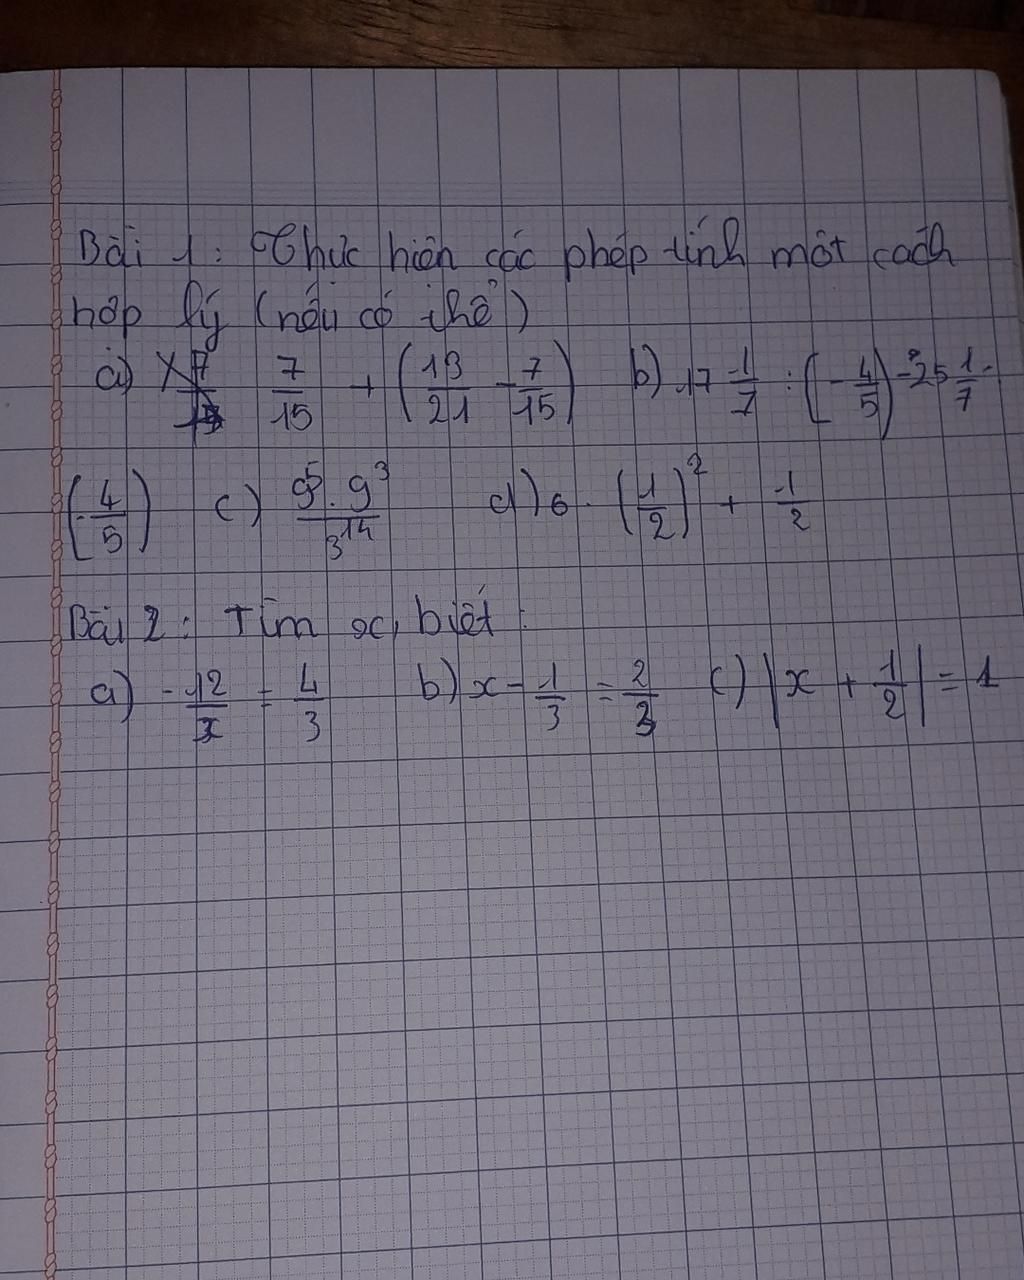 Bài 1: Thực hiện các phép tính một cách
hợp lý (nếu có thể)
a) 7/15 + (13/21 - 7/15) b) 17 1/7 : (-4/5) - 25 1/7 :
(-4/5) c) 9^5 . 9^3 / 3^14 d) 6 . (1/2)^2 + 1/2
Bài 2: Tìm x, biết:
a) -12/x = 4/3 b) x - 1/3 = 2/3 c) |x + 1/2| = 1